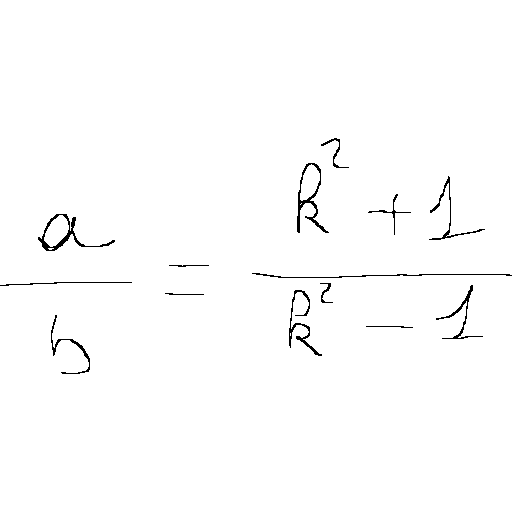 \frac{a}{b} = \frac{k^2 + 1}{k^2 - 1}